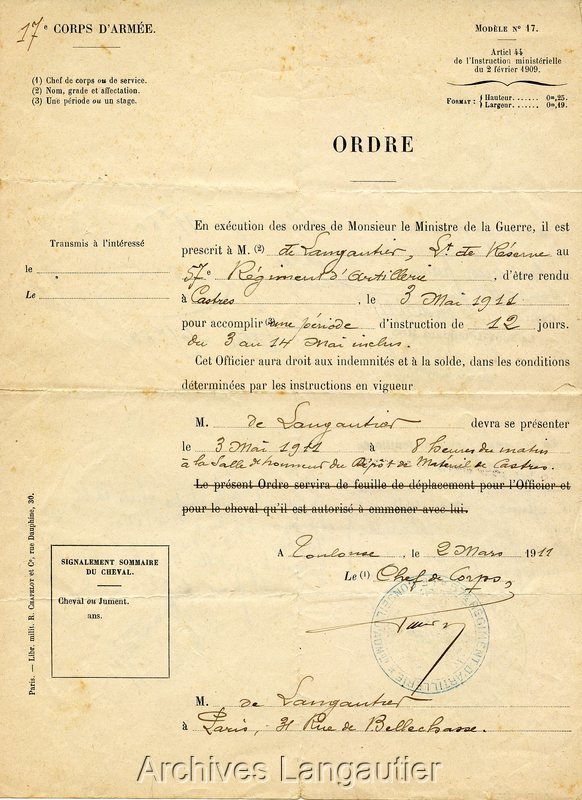 17e CORPS D'ARMÉE.
(1) Chef de corps ou de service.
(2) Nom, grade et affectation.
(3) Une période ou un stage.
MODÈLE No 17.
Articl 44
de l'Instruction ministérielle
du 2 février 1909.
FORMAT : { Hauteur...... 0m,25.
Largeur...... 0m,19.
ORDRE
Transmis à l'intéressé
le
Le
En exécution des ordres de Monsieur le Ministre de la Guerre, il est
prescrit à M. (2) de Langautier, Lt de Réserve au
57e Régiment d'Artillerie, d'être rendu
à Castres, le 3 Mai 1911
pour accomplir (3) une période d'instruction de 12 jours.
du 3 au 14 Mai inclus.
Cet Officier aura droit aux indemnités et à la solde, dans les conditions
déterminées par les instructions en vigueur
M. de Langautier devra se présenter
le 3 Mai 1911 à 8 heures du matin
à la Salle d'honneur du Dépôt de Matériel de Castres.
Le présent Ordre servira de feuille de déplacement pour l'Officier et
pour le cheval qu'il est autorisé à emmener avec lui.
A Toulouse, le 2 Mars 1911
Le (1) Chef de Corps,
SIGNALEMENT SOMMAIRE
DU CHEVAL.
Cheval ou Jument.
ans.
Paris. — Libr. milit. R. CHAPELOT et Ce, rue Dauphine, 30.
RÉGIMENT D'ARTILLERIE
M. de Langautier
à Paris, 31 Rue de Bellechasse.
Archives Langautier